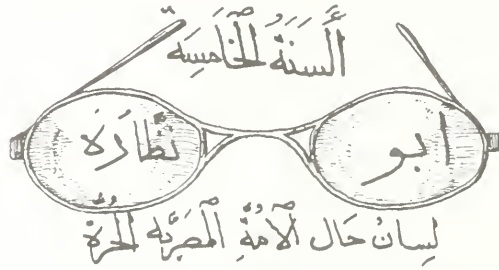 أَلسَنَةُ الْخَامِسَة
ابو نظارة
لِسانُ حَال الْأُمَّةِ الْمَصرِيَّه الحُرَّة